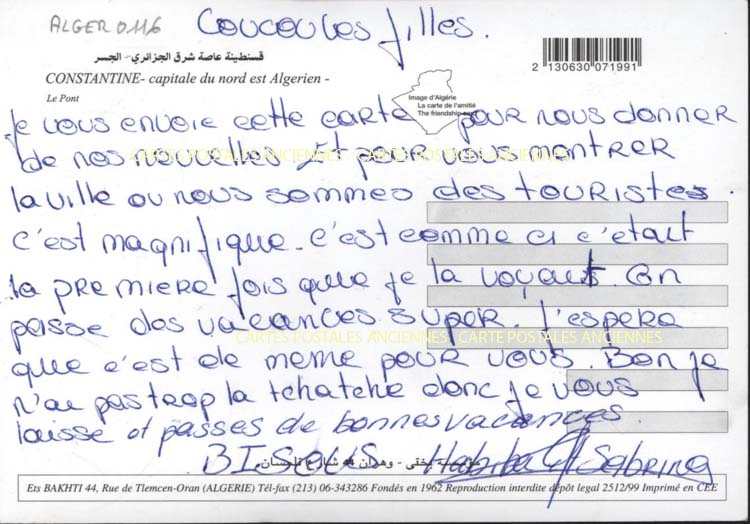 ALGER 0116
Coucou les filles.
قسنطينة عاصة شرق الجزائري - الجسر
CONSTANTINE- capitale du nord est Algerien -
Le Pont
2 130630 071991
Image d'Algérie
La carte de l'amitié
The friendship card
Je vous envoie cette carte pour nous donner
de nos nouvelles Et pour vous montrer
CARTES POSTALES ANCIENNES CARTE POSTALES ANCIENNES
la ville ou nous sommes des touristes.
c'est magnifique. c'est comme ci c'était
la premiere fois que je la voyait. On
passe des vacances super. J'espere
CARTES POSTALES ANCIENNES CARTE POSTALES ANCIENNES
que c'est de meme pour vous. Bon je
n'ai pas trop la tchatche donc je vous
laisse et passes de bonnes vacances.
BISOUS Habiba et Sabrina
بختي - وهران
Ets BAKHTI 44, Rue de Tlemcen-Oran (ALGERIE) Tél-fax (213) 06-343286 Fondés en 1962 Reproduction interdite dépôt legal 2512/99 Imprimé en CEE